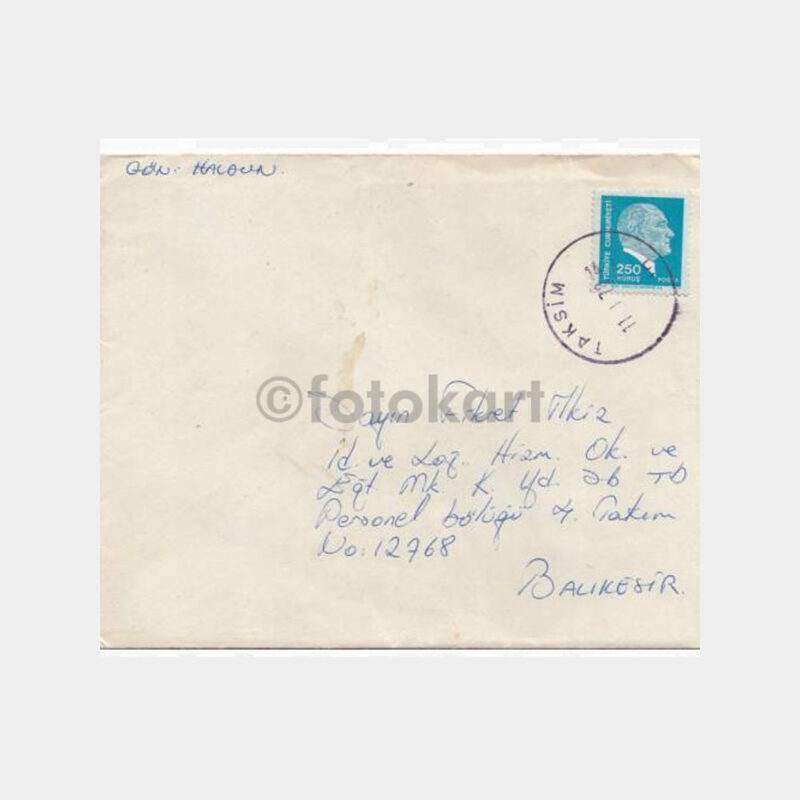 GÖN: HALDUN.
TÜRKİYE CUMHURİYETİ
250
KURUŞ
POSTA
TAKSİM
©fotokart
Sayın Fikret İlkiz
İd. ve Loj. Hizm. Ok. ve
Eğt Mk. K. Yd. Sb TD
Personel bölüğü 4. Takım
No: 12768
BALIKESİR.